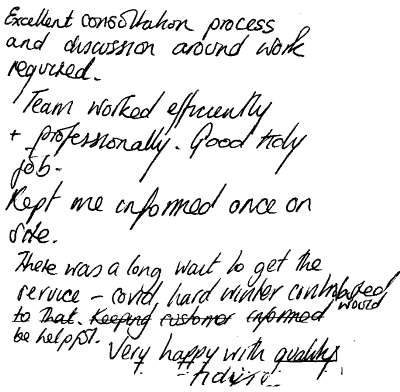 Excellent consultation process
and discussion around work
required.
Team worked efficiently
+ professionally. Good tidy
job.
Kept me informed once on
site.
There was a long wait to get the
service - covid, hard winter contributed
to that. Keeping customer informed would
be helpful.
Very happy with quality